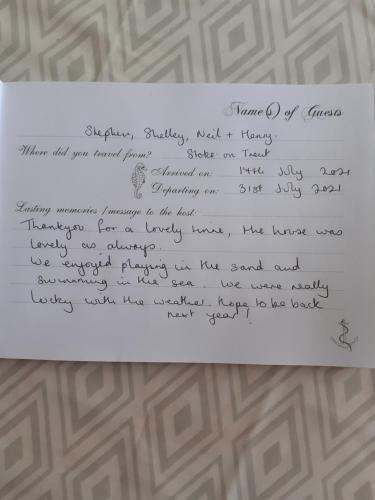 Name(s) of Guests
Stephen, Shelley, Neil + Henry.
Where did you travel from? Stoke on Trent
Arrived on: 17th July 2021
Departing on: 31st July 2021
Lasting memories / message to the host:
Thankyou for a lovely time, the house was
lovely as always.
We enjoyed playing in the sand and
swimming in the sea. We were really
lucky with the weather. Hope to be back
next year!